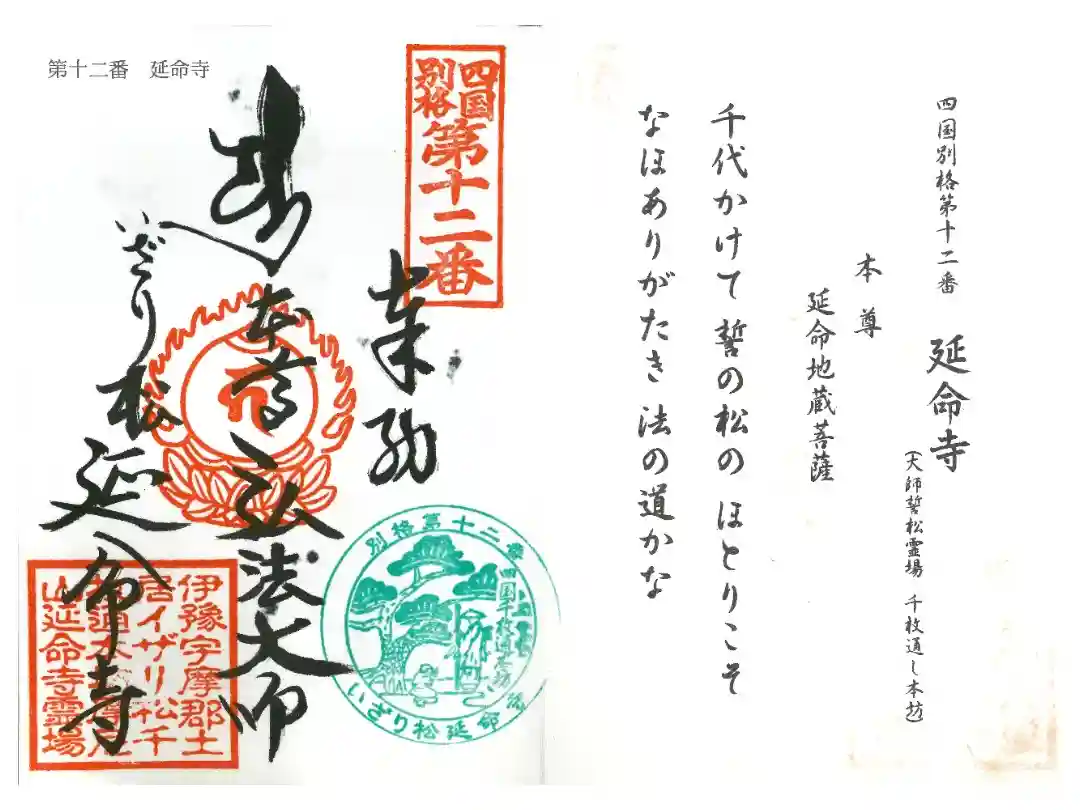 四国別格第十二番 延命寺
(大師誓松霊場 千枚通し本坊)
本尊
延命地蔵菩薩
千代かけて 誓の松の ほとりこそ
なほありがたき 法の道かな
第十二番 延命寺
四国
別格
第十二番
奉納
本尊 弘法大師
いざり松
延命寺
別格第十二番
四国千枚通本坊
いざり松延命
伊豫宇摩郡土
居イザリ松千
山延命寺霊場